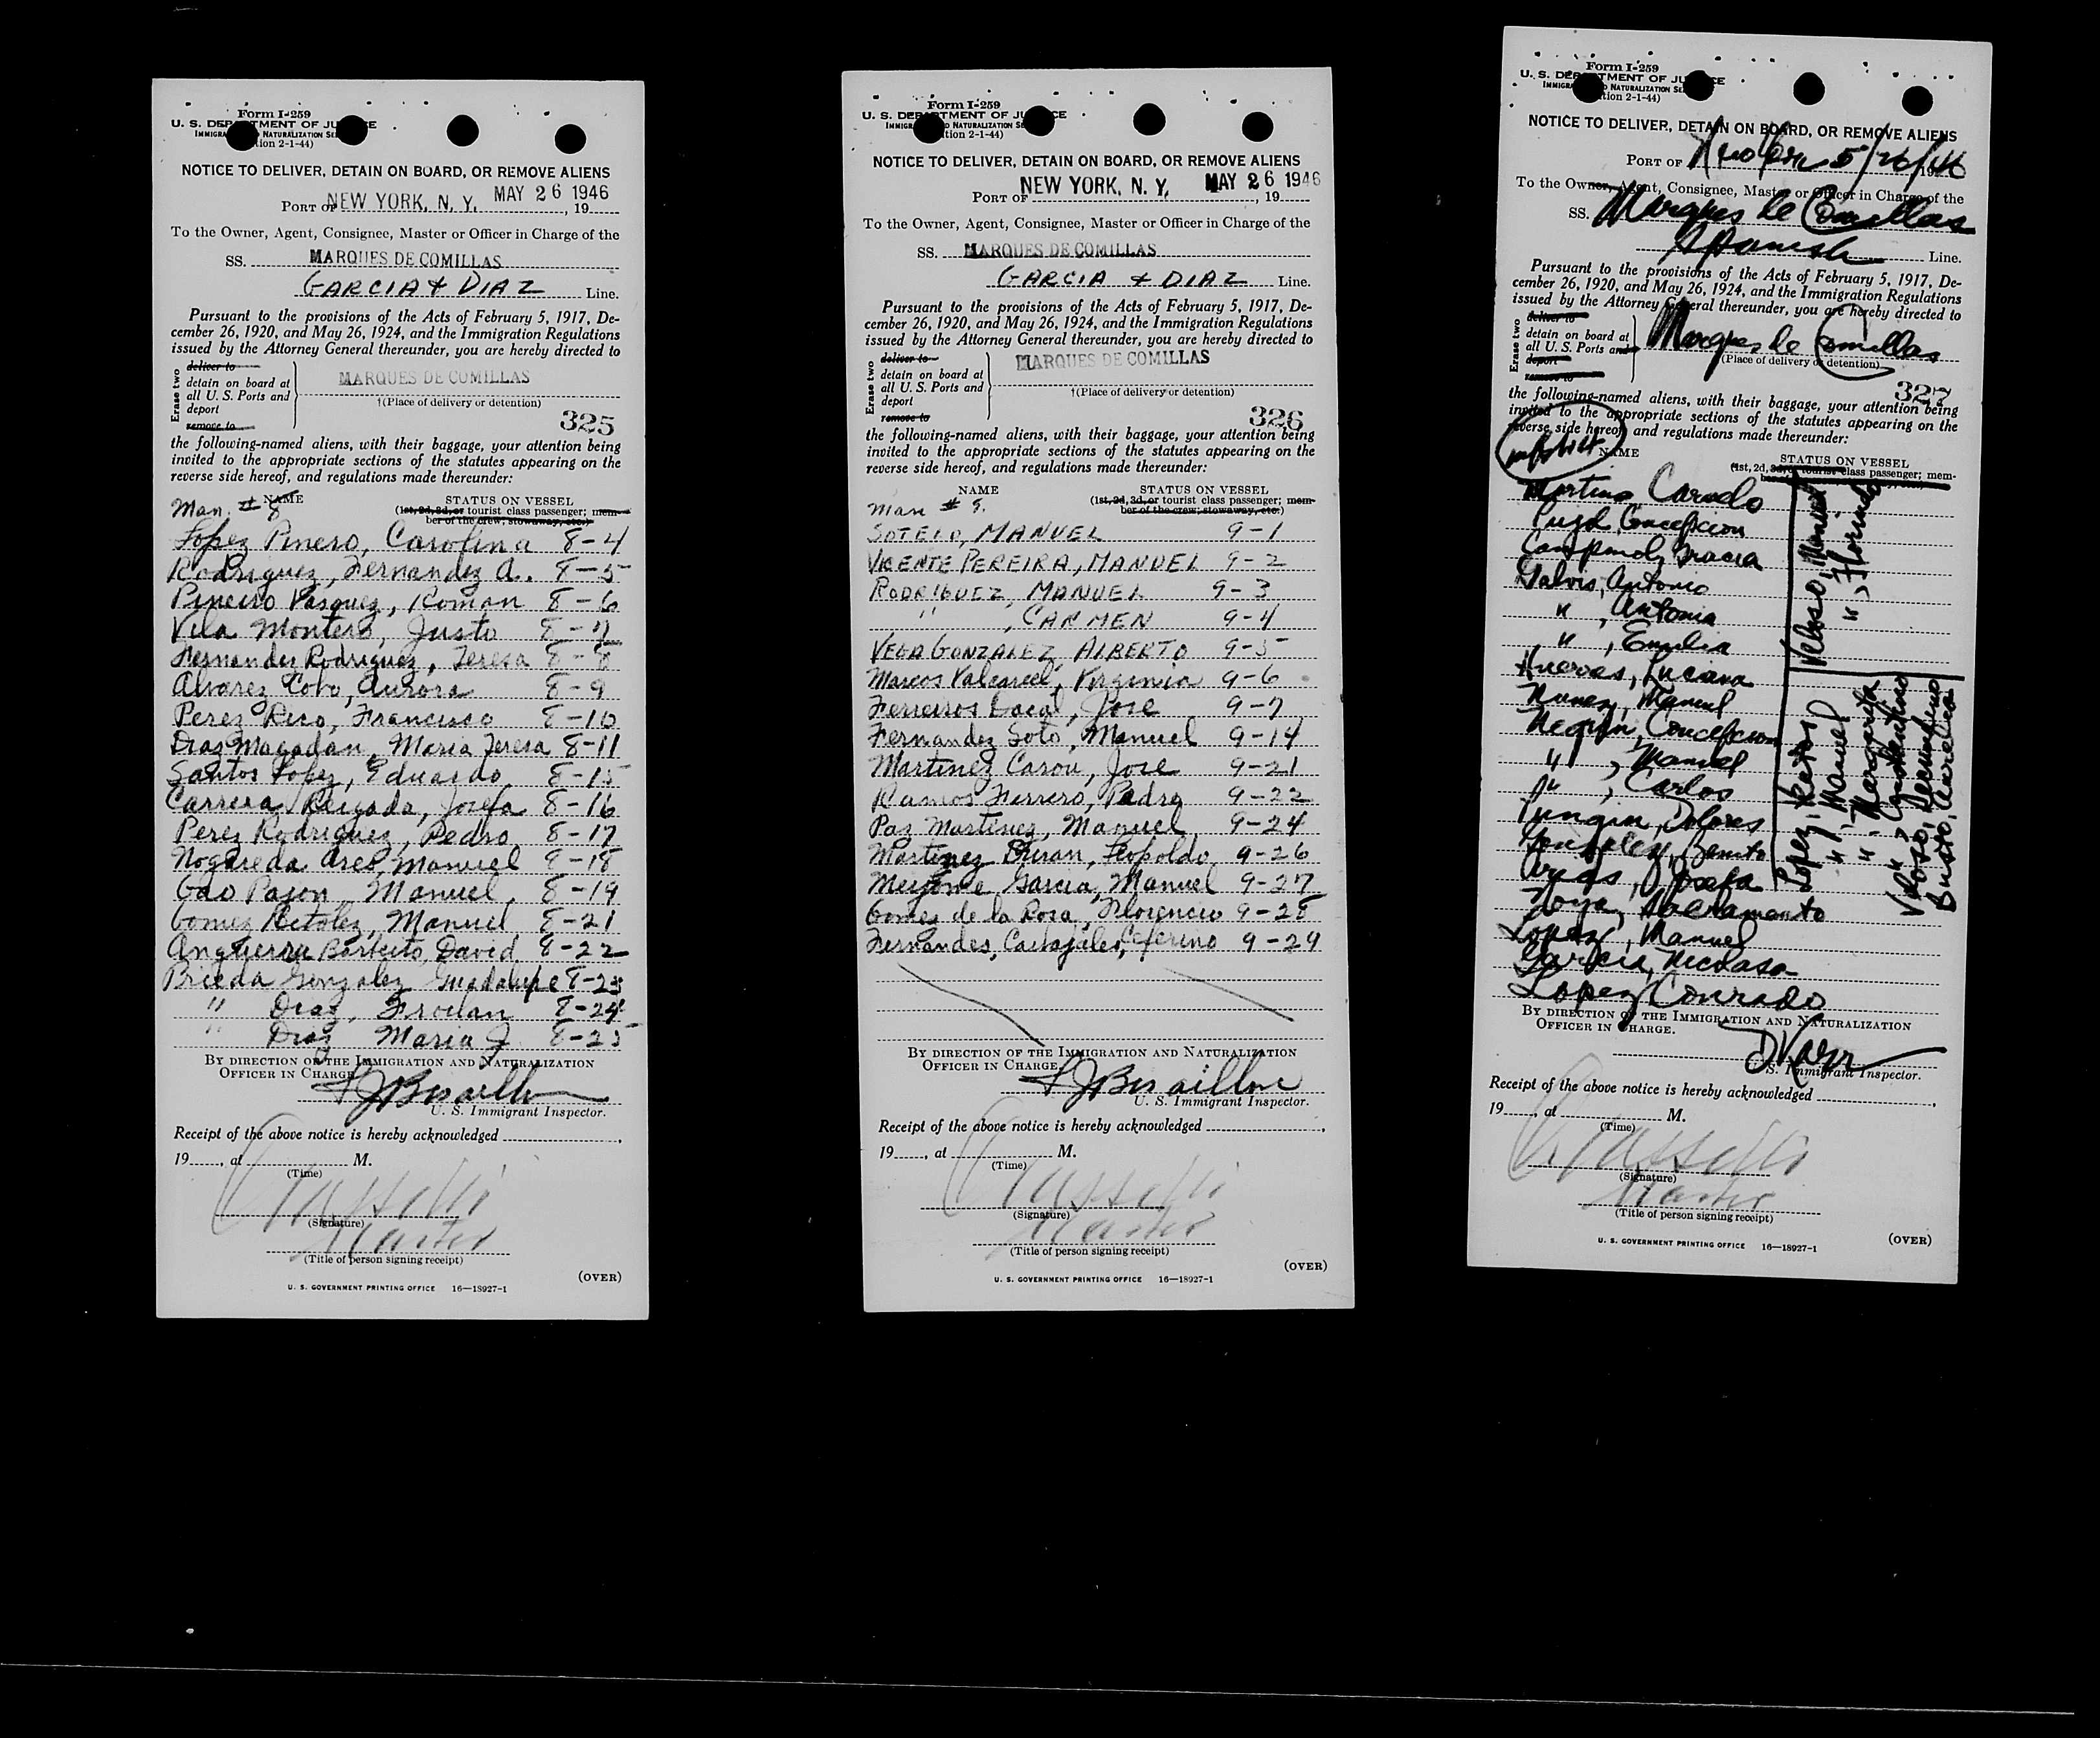 Form I-259
U. S. DEPARTMENT OF JUSTICE
IMMIGRATION AND NATURALIZATION SERVICE
(Edition 2-1-44)
NOTICE TO DELIVER, DETAIN ON BOARD, OR REMOVE ALIENS
PORT OF NEW YORK, N. Y. MAY 26 1946, 19
To the Owner, Agent, Consignee, Master or Officer in Charge of the
SS. MARQUES DE COMILLAS
GARCIA & DIAZ Line.
Pursuant to the provisions of the Acts of February 5, 1917, De-
cember 26, 1920, and May 26, 1924, and the Immigration Regulations
issued by the Attorney General thereunder, you are hereby directed to
Erase two
deliver to
detain on board at
all U. S. Ports and
deport
remove to
MARQUES DE COMILLAS
†(Place of delivery or detention)
325
the following-named aliens, with their baggage, your attention being
invited to the appropriate sections of the statutes appearing on the
reverse side hereof, and regulations made thereunder:
NAME STATUS ON VESSEL
Man. # 8 (1st, 2d, 3d, or tourist class passenger; mem-
ber of the crew; stowaway, etc.)
Lopez Pinero, Carolina 8-4
Rodriguez, Fernandez A. 8-5
Pineiro Vasquez, Roman 8-6
Vila Montero, Justo 8-7
Fernandez Rodriguez, Teresa 8-8
Alvarez Cobo, Aurora 8-9
Perez Rico, Francisco 8-10
Diaz Magadan, Maria Teresa 8-11
Santos Lopez, Eduardo 8-15
Carrera Reigada, Josefa 8-16
Perez Rodriguez, Pedro 8-17
Nogareda Ares, Manuel 8-18
Gao Pajon, Manuel 8-19
Gomez Manuel 8-21
Barbeito David 8-22
Brieda Gonzalez Guadalupe 8-23
" Diaz, Froilan 8-24
" Diaz Maria J. 8-25
BY DIRECTION OF THE IMMIGRATION AND NATURALIZATION
OFFICER IN CHARGE.
U. S. Immigrant Inspector.
Receipt of the above notice is hereby acknowledged ,
19 , at M.
(Time)
(Signature)
Master
(Title of person signing receipt)
(OVER)
U. S. GOVERNMENT PRINTING OFFICE 16—18927-1
Form I-259
U. S. DEPARTMENT OF JUSTICE
IMMIGRATION AND NATURALIZATION SERVICE
(Edition 2-1-44)
NOTICE TO DELIVER, DETAIN ON BOARD, OR REMOVE ALIENS
PORT OF NEW YORK, N. Y. MAY 26 1946, 19
To the Owner, Agent, Consignee, Master or Officer in Charge of the
SS. MARQUES DE COMILLAS
GARCIA & DIAZ Line.
Pursuant to the provisions of the Acts of February 5, 1917, De-
cember 26, 1920, and May 26, 1924, and the Immigration Regulations
issued by the Attorney General thereunder, you are hereby directed to
Erase two
deliver to
detain on board at
all U. S. Ports and
deport
remove to
MARQUES DE COMILLAS
†(Place of delivery or detention)
326
the following-named aliens, with their baggage, your attention being
invited to the appropriate sections of the statutes appearing on the
reverse side hereof, and regulations made thereunder:
NAME STATUS ON VESSEL
Man # 9. (1st, 2d, 3d, or tourist class passenger; mem-
ber of the crew; stowaway, etc.)
SOTELO, MANUEL 9-1
VICENTE PEREIRA, MANUEL 9-2
RODRIGUEZ, MANUEL 9-3
" , CARMEN 9-4
VEGA GONZALEZ, ALBERTO 9-5
Marcos Valcarcel, Virginia 9-6
Ferreiros Jose 9-7
Fernandez Soto, Manuel 9-14
Martinez Carou, Jose 9-21
Ramos Ferrero, Pedro 9-22
Paz Martinez, Manuel 9-24
Martinez Duran, Leopoldo 9-26
Garcia, Manuel 9-27
Gomez de la Rosa, Florencio 9-28
Fernandes, Ceferino 9-29
BY DIRECTION OF THE IMMIGRATION AND NATURALIZATION
OFFICER IN CHARGE.
U. S. Immigrant Inspector.
Receipt of the above notice is hereby acknowledged ,
19 , at M.
(Time)
(Signature)
Master
(Title of person signing receipt)
(OVER)
U. S. GOVERNMENT PRINTING OFFICE 16—18927-1
Form I-259
U. S. DEPARTMENT OF JUSTICE
IMMIGRATION AND NATURALIZATION SERVICE
(Edition 2-1-44)
NOTICE TO DELIVER, DETAIN ON BOARD, OR REMOVE ALIENS
PORT OF New York 5/26/46 19
To the Owner, Agent, Consignee, Master or Officer in Charge of the
SS. Marques de Comillas
Spanish Line.
Pursuant to the provisions of the Acts of February 5, 1917, De-
cember 26, 1920, and May 26, 1924, and the Immigration Regulations
issued by the Attorney General thereunder, you are hereby directed to
Erase two
deliver to
detain on board at
all U. S. Ports and
deport
remove to
Marques de Comillas
(Place of delivery or detention)
327
the following-named aliens, with their baggage, your attention being
invited to the appropriate sections of the statutes appearing on the
reverse side hereof, and regulations made thereunder:
NAME STATUS ON VESSEL
(1st, 2d, 3d, or tourist class passenger; mem-
Caruelo
Pujol, Concepcion
Gracia
Galvis, Antonio
" , Antonia
" , Emilia
Huervas, Luciana
Nunez, Manuel
Negrin, Concepcion
" , Manuel
" , Carlos
Dolores
Gonzalez, Benito
Arias, Josefa
Noya, Sacramento
Lopez, Manuel
Garcia, Nicolasa
Lopez, Conrado
Veloso, Manuel
" , Florinda
Lopez,
" , Manuel
" , Margarita
" ,
Veloso,
Busto, Aurelia
BY DIRECTION OF THE IMMIGRATION AND NATURALIZATION
OFFICER IN CHARGE.
U. S. Immigrant Inspector.
Receipt of the above notice is hereby acknowledged ,
19 , at M.
(Time)
(Signature)
Master
(Title of person signing receipt)
(OVER)
U. S. GOVERNMENT PRINTING OFFICE 16—18927-1